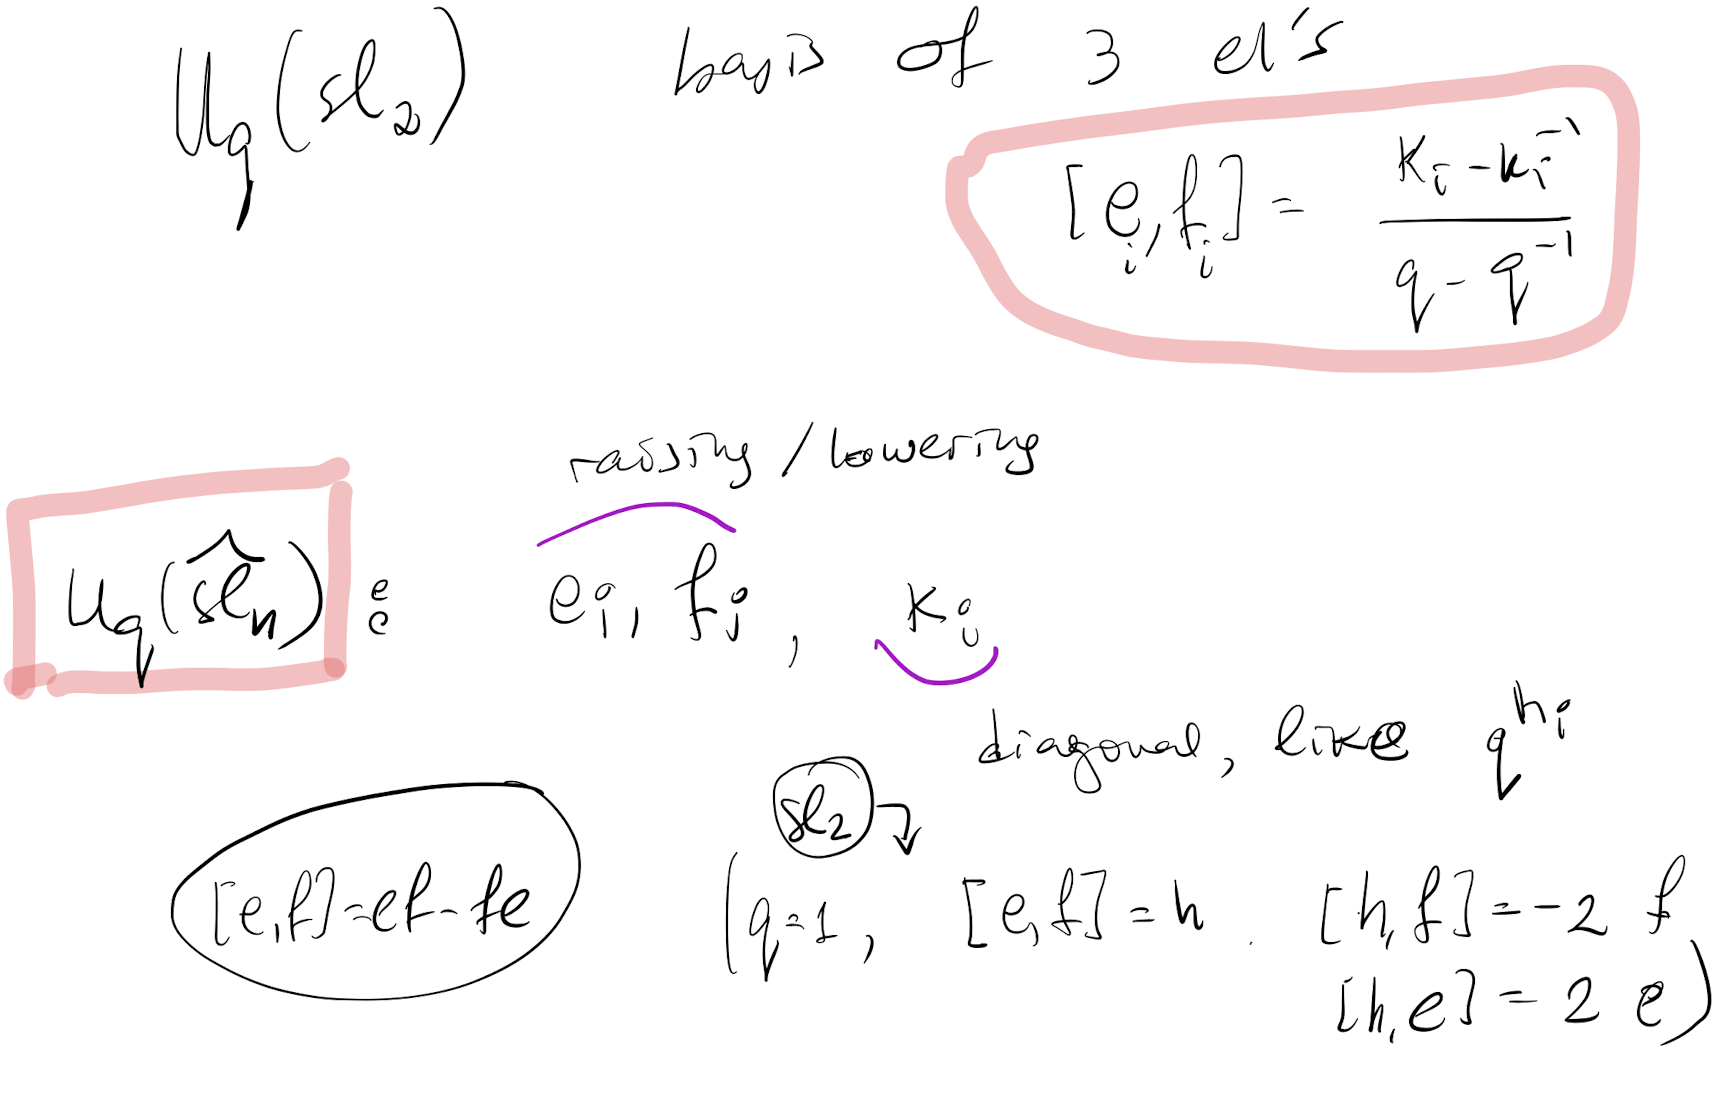 U_q(sl_2) basis of 3 el's
[e_i, f_i] = \frac{K_i - K_i^{-1}}{q - q^{-1}}
raising / lowering
U_q(\widehat{sl}_n) : e_i, f_i, K_i
diagonal, like q^{h_i}
sl_2
[e,f]=ef-fe (q=1, [e,f]=h. [h,f]=-2 f
[h,e]=2 e)